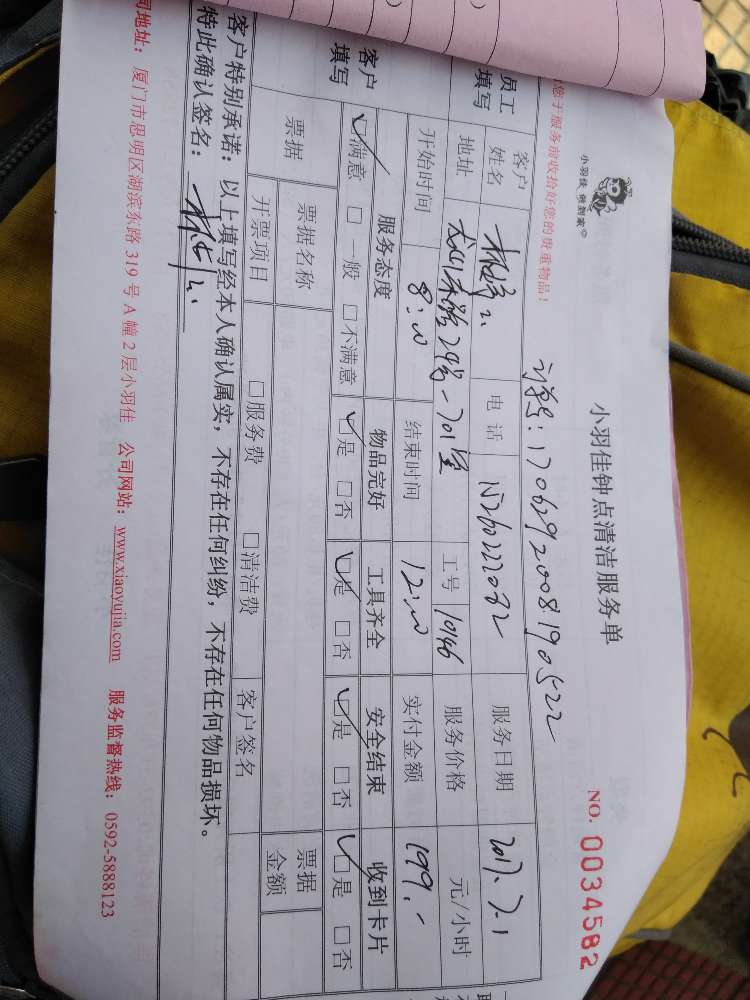 小羽佳 做到家
小羽佳钟点清洁服务单
NO. 0034582
您于服务前收拾好您的贵重物品！
1706292008190522
员工填写
客户姓名
电话 15260222082
服务日期 2017.7.1
地址 29号-701室
工号 10146
服务价格 元/小时
开始时间 8:00
结束时间 12:00
实付金额 199.-
客户填写
服务态度 物品完好 工具齐全 安全结束 收到卡片
☑满意 □一般 □不满意 ☑是 □否 ☑是 □否 ☑是 □否 ☑是 □否
票据
票据名称
票据金额
开票项目 □服务费 □清洁费 客户签名
客户特别承诺：以上填写经本人确认属实，不存在任何纠纷，不存在任何物品损坏。
特此确认签名：
司地址：厦门市思明区湖滨东路 319 号 A 幢 2 层小羽佳 公司网站：www.xiaoyujia.com 服务监督热线：0592-5888123